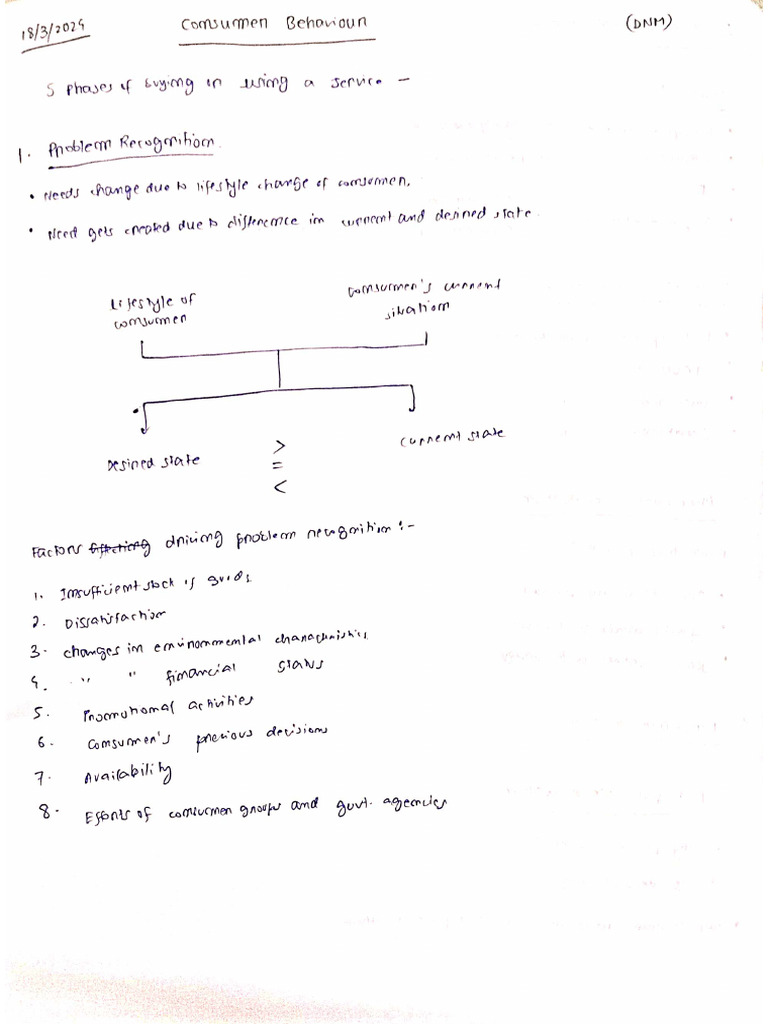 18/3/2024
Consumer Behaviour
(DNM)
5 phases of buying or using a service –
1. Problem Recognition.
• Needs change due to lifestyle change of consumer.
• Need gets created due to difference in current and desired state.
Lifestyle of
consumer
Consumer's current
situation
Desired state
>
=
<
Current state
Factors effecting driving problem recognition :-
1. Insufficient stock of goods
2. Dissatisfaction
3. changes in environmental characteristics
4. " " financial status
5. Promotional activities
6. Consumer's previous decisions
7. Availability
8. Efforts of consumer groups and govt. agencies